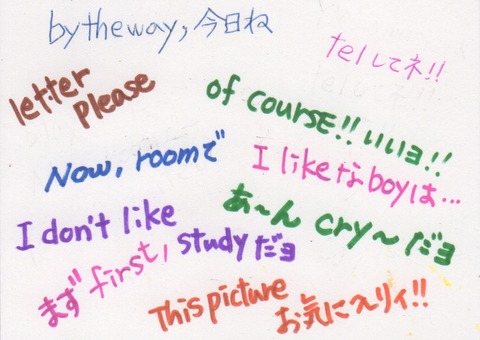 by the way, 今日ね
telしてネ!!
letter
please
of course!! いいヨ!!
Now, roomで
I likeなboyは…
I don't like
あ〜ん cry〜だヨ
studyだヨ
まず first,
This picture
お気に入りィ!!